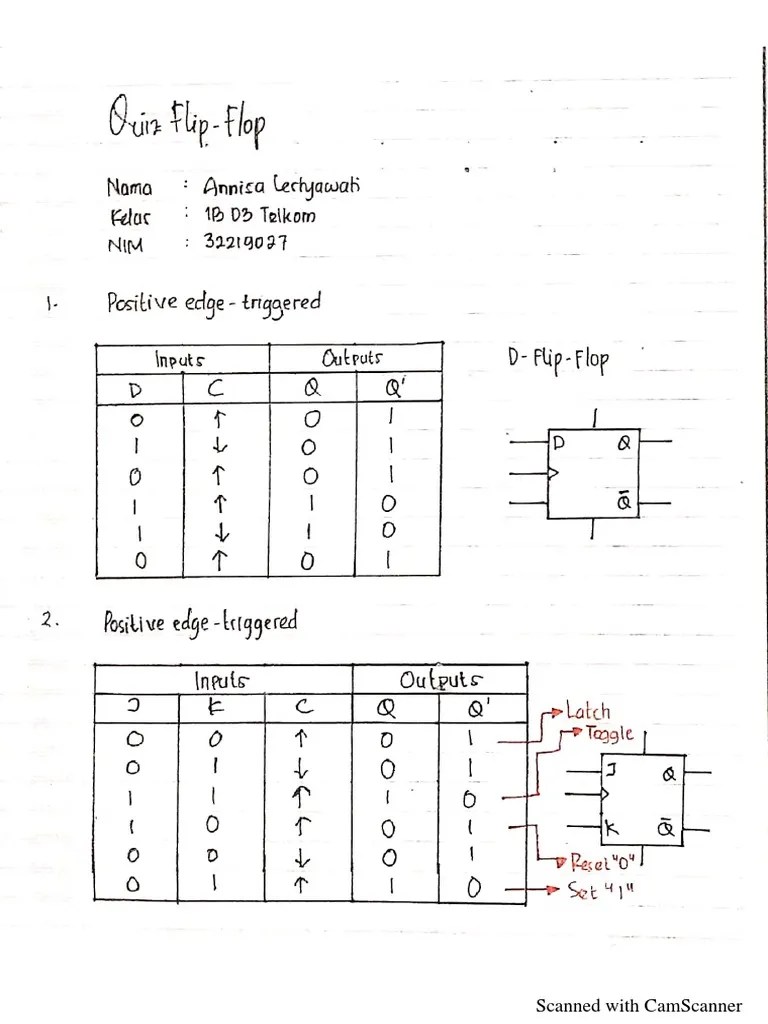 Quiz Flip-Flop
Nama : Annisa Lestyawati
Kelas : 1B D3 Telkom
NIM : 32219027
1. Positive edge-triggered
Inputs Outputs
D C Q Q'
0 ↑ 0 1
1 ↓ 0 1
0 ↑ 0 1
1 ↑ 1 0
1 ↓ 1 0
0 ↑ 0 1
D-Flip-Flop
D Q
Q̅
2. Positive edge-triggered
Inputs Outputs
J K C Q Q'
0 0 ↑ 0 1
0 1 ↓ 0 1
1 1 ↑ 1 0
1 0 ↑ 0 1
0 0 ↓ 0 1
0 1 ↑ 1 0
Latch
Toggle
J Q
K Q̅
Reset "0"
Set "1"
Scanned with CamScanner